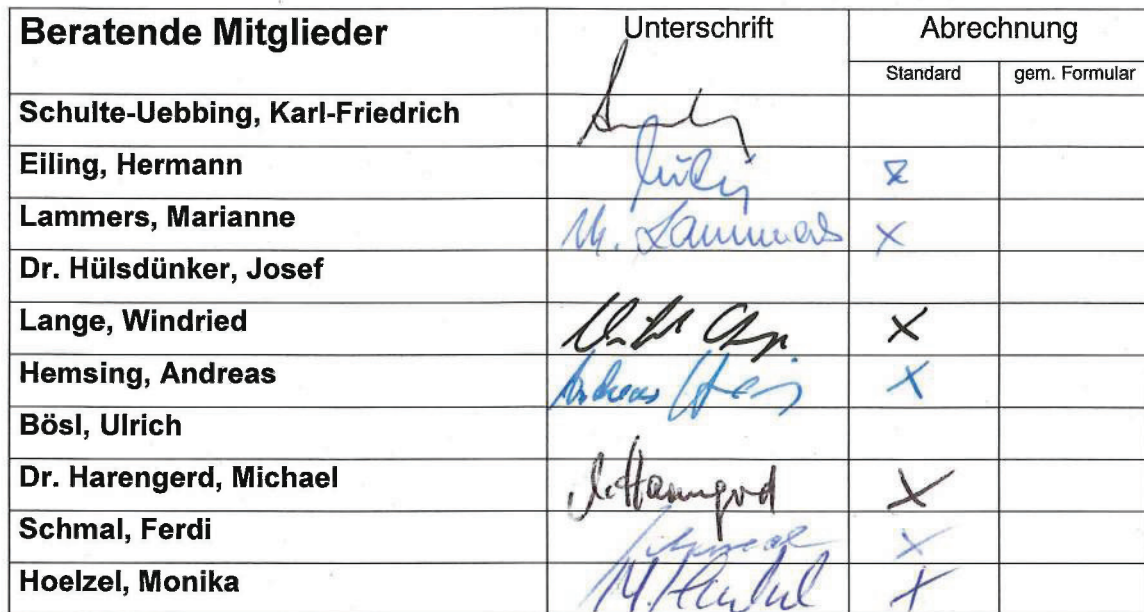 Beratende Mitglieder Unterschrift Abrechnung
Standard gem. Formular
Schulte-Uebbing, Karl-Friedrich
Eiling, Hermann
Lammers, Marianne M. Lammers X
Dr. Hülsdünker, Josef
Lange, Windried X
Hemsing, Andreas Andreas X
Bösl, Ulrich
Dr. Harengerd, Michael X
Schmal, Ferdi X
Hoelzel, Monika X